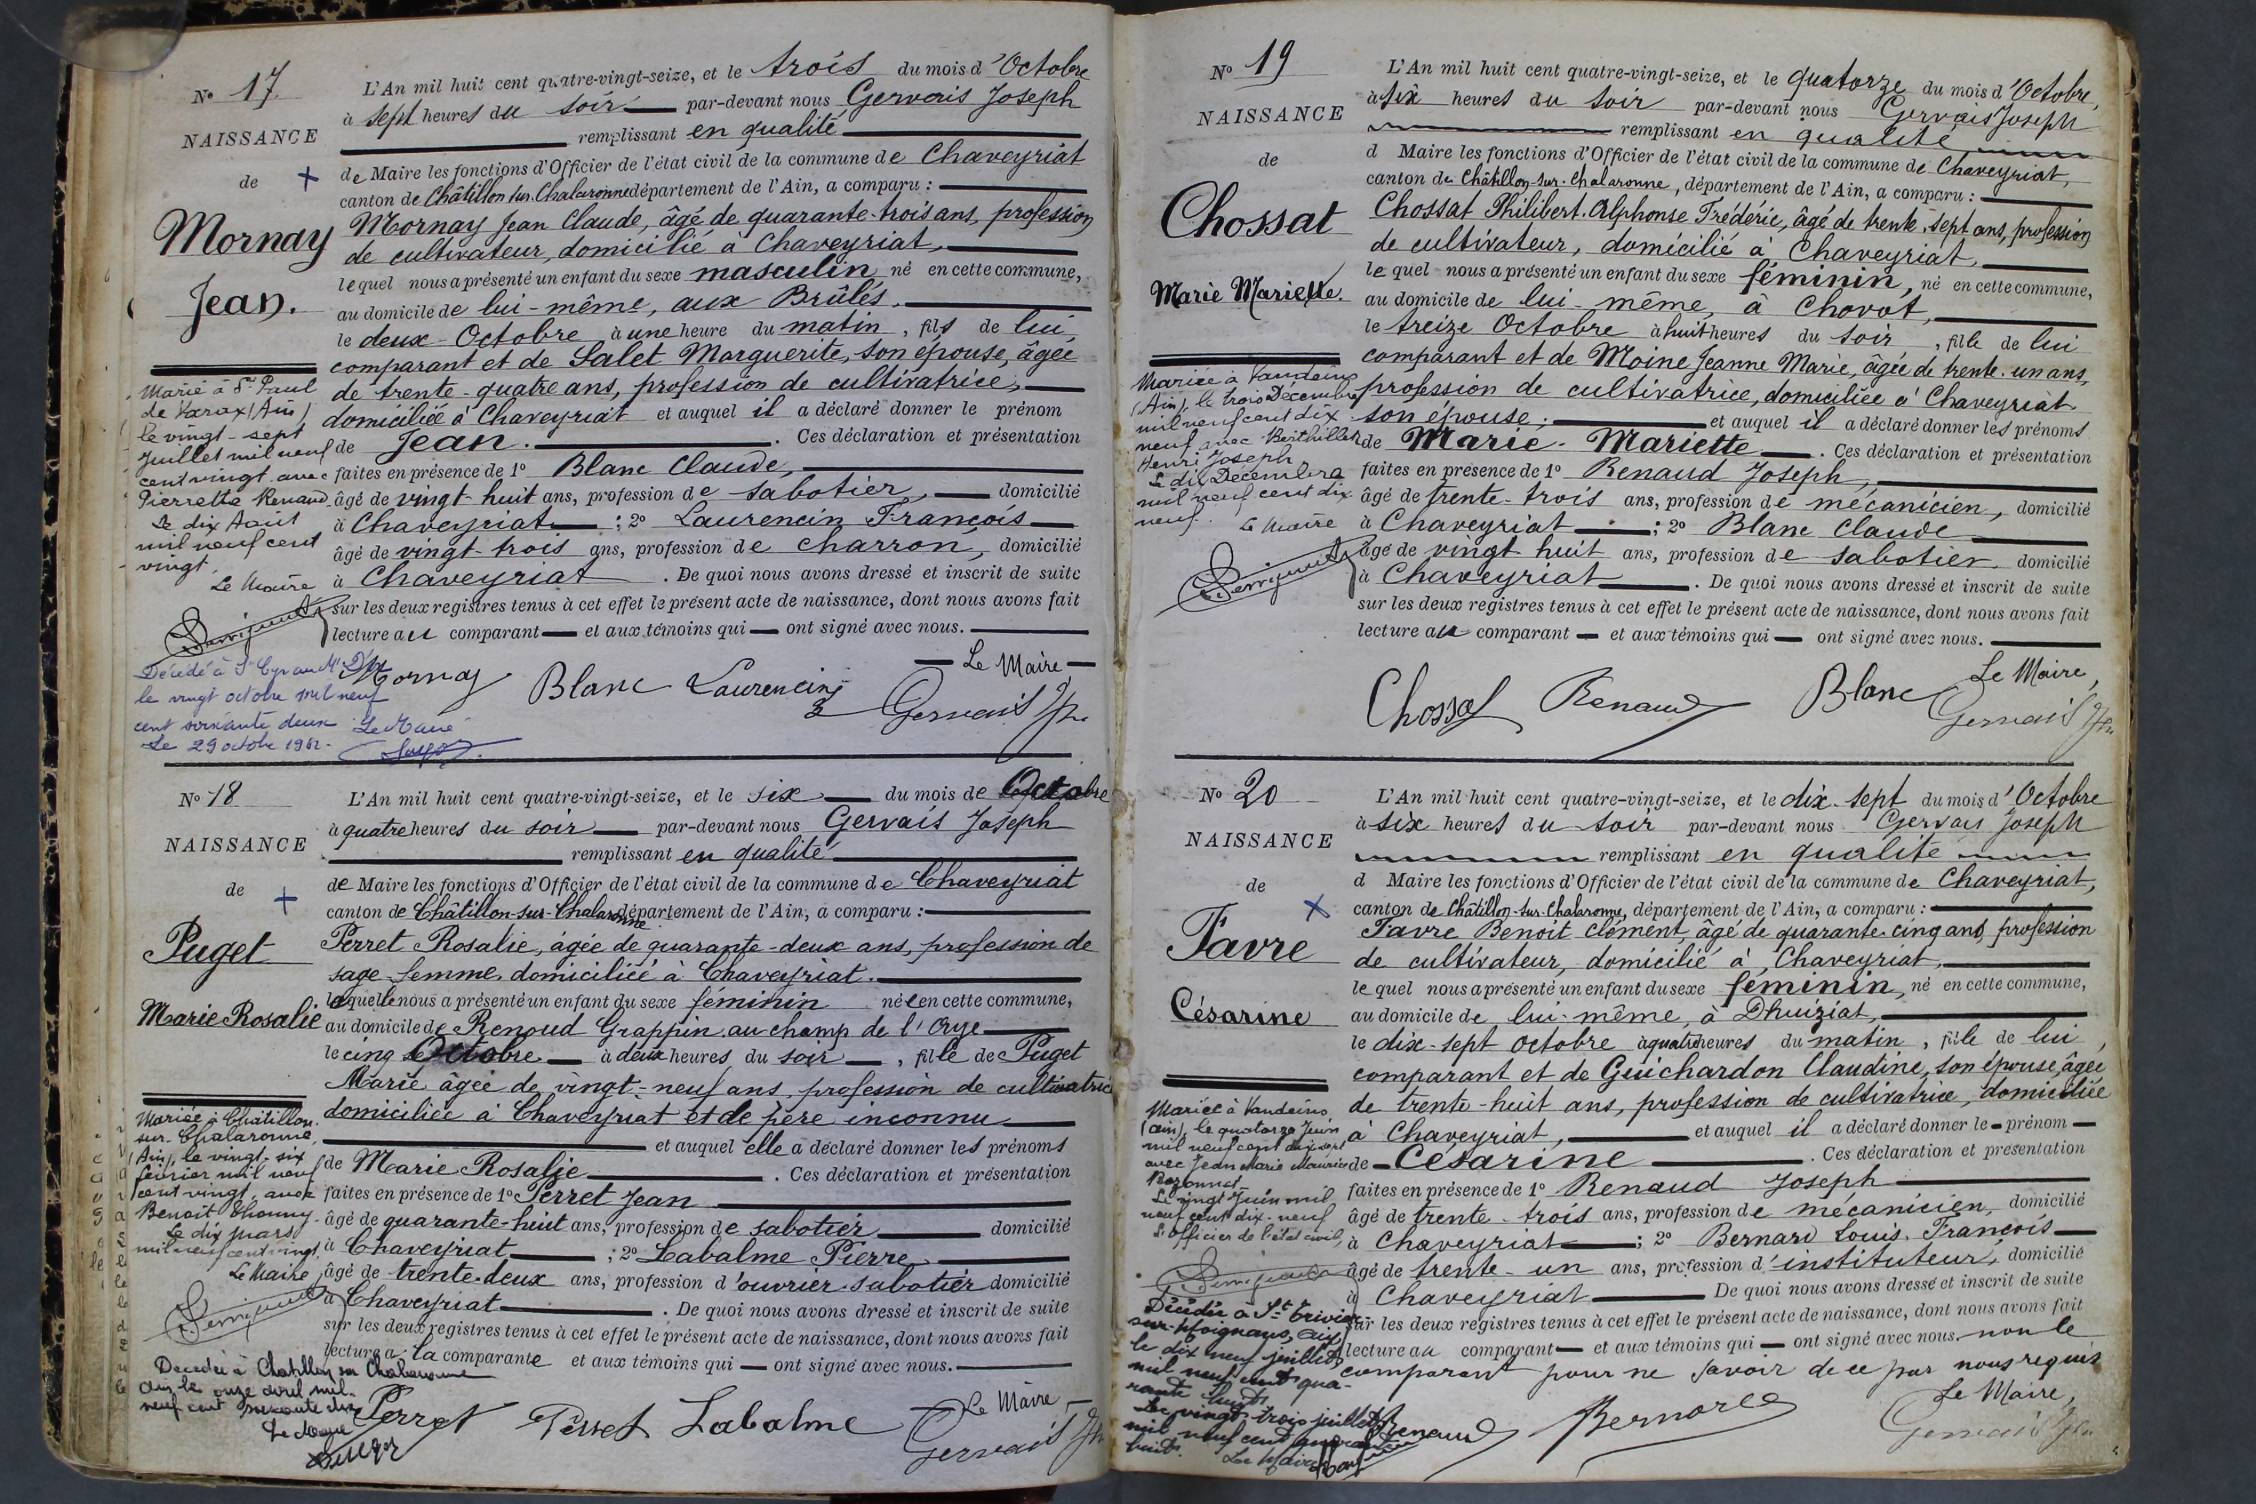 Nº 17.
NAISSANCE
de
Mornay
Jean.
L'An mil huit cent quatre-vingt-seize, et le trois du mois d'Octobre
à sept heures du soir par-devant nous Gervais Joseph
remplissant en qualité
de Maire les fonctions d'Officier de l'état civil de la commune de Chaveyriat
canton de Châtillon sur Chalaronne département de l'Ain, a comparu :
Mornay Jean Claude, âgé de quarante-trois ans, profession
de cultivateur, domicilié à Chaveyriat,
lequel nous a présenté un enfant du sexe masculin né en cette commune,
au domicile de lui-même, aux Brûlés.
le deux Octobre à une heure du matin, fils de lui
comparant et de Salet Marguerite, son épouse, âgée
de trente-quatre ans, profession de cultivatrice,
domiciliée à Chaveyriat et auquel il a déclaré donner le prénom
de Jean. Ces déclaration et présentation
faites en présence de 1º Blanc Claude,
âgé de vingt-huit ans, profession de sabotier, domicilié
à Chaveyriat ; 2º Laurencin François
âgé de vingt-trois ans, profession de charron, domicilié
à Chaveyriat. De quoi nous avons dressé et inscrit de suite
sur les deux registres tenus à cet effet le présent acte de naissance, dont nous avons fait
lecture au comparant et aux témoins qui ont signé avec nous.
Le Maire
Mornay Blanc Laurencin Gervais Jh
Marié à St Paul
de Varax (Ain)
le vingt-sept
Juillet mil neuf
cent vingt avec
Pierrette Renaud
Le dix Août
mil neuf cent
vingt.
Le Maire
Décédé à St Cyr
le vingt octobre mil neuf
cent soixante deux Le Maire
Le 29 octobre 1962.
Nº 18
NAISSANCE
de
Puget
Marie Rosalie
L'An mil huit cent quatre-vingt-seize, et le six du mois de Octobre
à quatre heures du soir par-devant nous Gervais Joseph
remplissant en qualité
de Maire les fonctions d'Officier de l'état civil de la commune de Chaveyriat
canton de Châtillon-sur-Chalaronne département de l'Ain, a comparu :
Perret Rosalie, âgée de quarante-deux ans, profession de
sage-femme, domiciliée à Chaveyriat.
laquelle nous a présenté un enfant du sexe féminin née en cette commune,
au domicile de Renoud Grappin au champ de l'Orge
le cinq Octobre à deux heures du soir, fille de Puget
Marie âgée de vingt-neuf ans, profession de cultivatrice
domiciliée à Chaveyriat et de père inconnu
et auquel elle a déclaré donner les prénoms
de Marie Rosalie Ces déclaration et présentation
faites en présence de 1º Perret Jean
âgé de quarante-huit ans, profession de sabotier domicilié
à Chaveyriat ; 2º Labalme Pierre
âgé de trente-deux ans, profession d'ouvrier-sabotier domicilié
à Chaveyriat. De quoi nous avons dressé et inscrit de suite
sur les deux registres tenus à cet effet le présent acte de naissance, dont nous avons fait
lecture à la comparante et aux témoins qui ont signé avec nous.
Le Maire
Perret Perret Labalme Gervais Jh
Mariée à Châtillon
sur-Chalaronne,
(Ain), le vingt-six
février mil neuf
cent vingt, avec
Benoit Thonny.
Le dix mars
mil neuf cent vingt.
Le Maire
Décédée à Chatillon sur Chalaronne
Ain le onze avril mil
neuf cent soixante dix
Le Maire
Nº 19
NAISSANCE
de
Chossat
Marie Mariette.
L'An mil huit cent quatre-vingt-seize, et le quatorze du mois d'Octobre,
à six heures du soir par-devant nous Gervais Joseph
remplissant en qualité
d Maire les fonctions d'Officier de l'état civil de la commune de Chaveyriat,
canton de Châtillon-sur-Chalaronne, département de l'Ain, a comparu :
Chossat Philibert Alphonse Frédéric, âgé de trente-sept ans, profession
de cultivateur, domicilié à Chaveyriat,
lequel nous a présenté un enfant du sexe féminin, né en cette commune,
au domicile de lui-même, à Chovot,
le treize Octobre à huit heures du soir, fille de lui
comparant et de Moine Jeanne Marie, âgée de trente-un ans,
profession de cultivatrice, domiciliée à Chaveyriat
son épouse ; et auquel il a déclaré donner les prénoms
de Marie-Mariette. Ces déclaration et présentation
faites en présence de 1º Renaud Joseph,
âgé de trente-trois ans, profession de mécanicien, domicilié
à Chaveyriat ; 2º Blanc Claude
âgé de vingt huit ans, profession de sabotier domicilié
à Chaveyriat. De quoi nous avons dressé et inscrit de suite
sur les deux registres tenus à cet effet le présent acte de naissance, dont nous avons fait
lecture au comparant et aux témoins qui ont signé avec nous.
Le Maire,
Chossat Renaud Blanc Gervais Jh
Mariée à Vandeins
(Ain), le trois Décembre
mil neuf cent dix
neuf avec Berthillier
Henri Joseph
Le dix Décembre
mil neuf cent dix
neuf. Le Maire
Nº 20
NAISSANCE
de
Favre
Césarine
L'An mil huit cent quatre-vingt-seize, et le dix-sept du mois d'Octobre
à six heures du soir par-devant nous Gervais Joseph
remplissant en qualité
d Maire les fonctions d'Officier de l'état civil de la commune de Chaveyriat,
canton de Châtillon-sur-Chalaronne, département de l'Ain, a comparu :
Favre Benoit Clément âgé de quarante-cinq ans, profession
de cultivateur, domicilié à Chaveyriat,
lequel nous a présenté un enfant du sexe féminin, né en cette commune,
au domicile de lui-même, à Dhuiziat,
le dix-sept octobre à quatre heures du matin, fille de lui,
comparant et de Guichardon Claudine, son épouse, âgée
de trente-huit ans, profession de cultivatrice, domiciliée
à Chaveyriat, et auquel il a déclaré donner le prénom
de Césarine. Ces déclaration et présentation
faites en présence de 1º Renaud Joseph
âgé de trente-trois ans, profession de mécanicien, domicilié
à Chaveyriat ; 2º Bernard Louis François
âgé de trente-un ans, profession d'instituteur, domicilié
à Chaveyriat De quoi nous avons dressé et inscrit de suite
sur les deux registres tenus à cet effet le présent acte de naissance, dont nous avons fait
lecture au comparant et aux témoins qui ont signé avec nous. non le
comparant pour ne savoir de ce par nous requis
Le Maire,
Renaud Bernard Gervais Jh
Mariée à Vandeins
(Ain), le quatorze Juin
mil neuf cent dix-neuf
avec Jean Marie Maurice
Le vingt Juin mil
neuf cent dix-neuf
L'officier de l'état civil,
Décédée à St Trivier
sur-Moignans, Ain
le dix neuf juillet
mil neuf cent qua-
rante huit.
Le vingt trois juillet
mil neuf cent quarante
huit. Le Maire